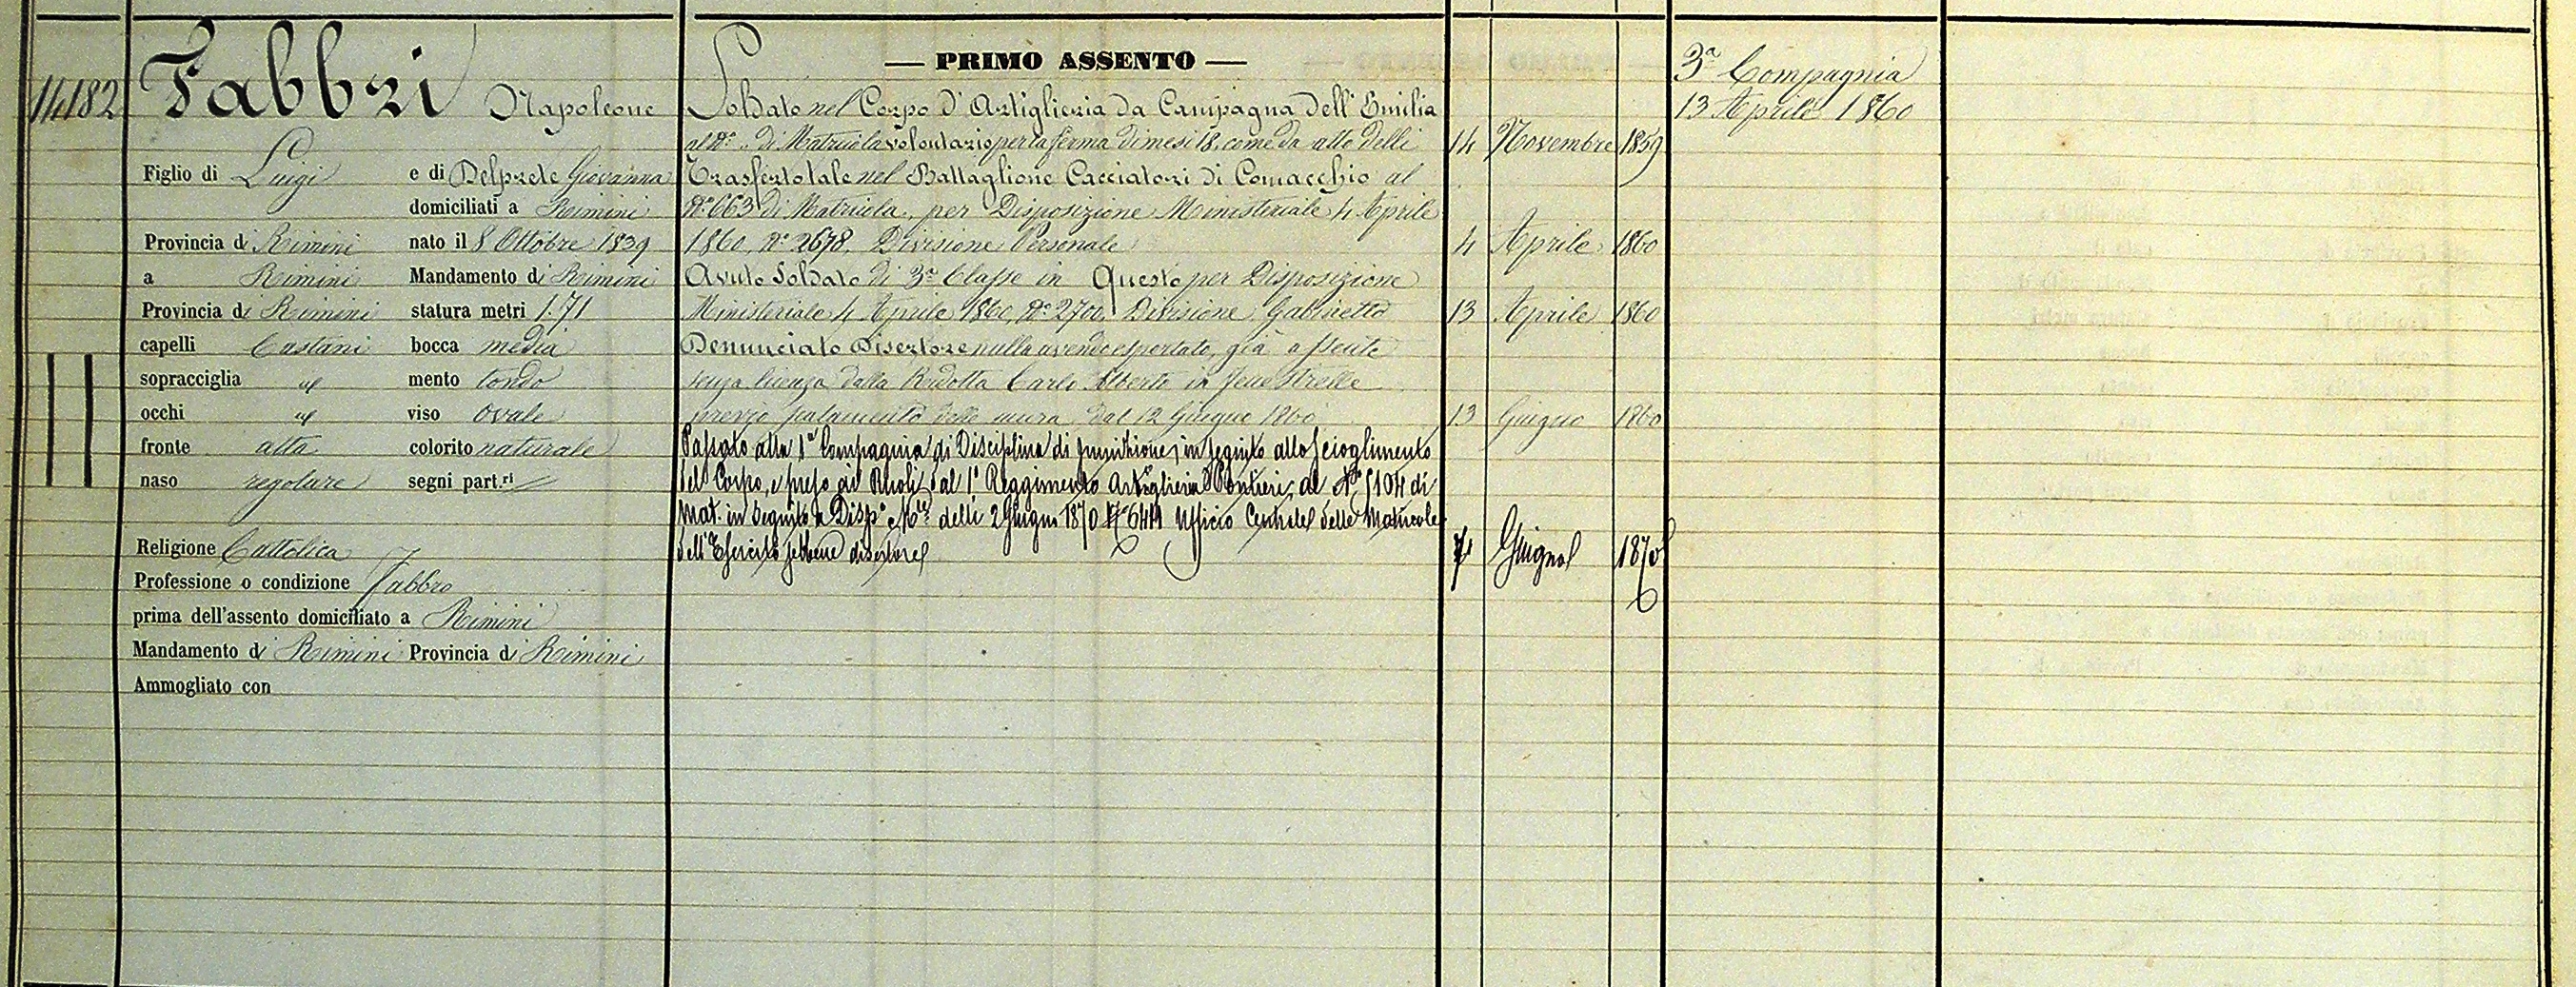 14182
Fabbri Napoleone
Figlio di Luigi e di Delprete Giovanna
domiciliati a Rimini
Provincia di Rimini nato il 8 Ottobre 1839
a Rimini Mandamento di Rimini
Provincia di Rimini statura metri 1.71
capelli Castani bocca media
sopracciglia id mento tondo
occhi id viso ovale
fronte alta colorito naturale
naso regolare segni part.ri
Religione Cattolica
Professione o condizione Fabbro
prima dell'assento domiciliato a Rimini
Mandamento di Rimini Provincia di Rimini
Ammogliato con
— PRIMO ASSENTO —
Soldato nel Corpo d'Artiglieria da Campagna dell'Emilia
al No .. di Matricola volontario per la ferma di mesi 18, come da atto delli 14 Novembre 1859
Trasferto tale nel Battaglione Cacciatori di Comacchio al
No 663 di Matricola, per Disposizione Ministeriale 4 Aprile
1860, No 2678, Divisione Personale 4 Aprile 1860
Avuto Soldato di 3a Classe in Questo per Disposizione
Ministeriale 4 Aprile 1860, No 2700, Divisione Gabinetto 13 Aprile 1860
Denunciato Disertore nulla avendo esportato, già assente
senza licenza dalla Ridotta Carlo Alberto in Fenestrelle
previo scalamento delle mura dal 12 Giugno 1860 13 Giugno 1860
Passato alla 1a Compagnia di Disciplina di punizione, in seguito allo scioglimento
del Corpo, e preso ai Ruoli dal 1o Reggimento Artiglieria Pontieri, al No 5104 di
Mat. in Seguito a Disp.e M.le delli 2 Giugno 1870 No 6411 Ufficio Centrale delle Matricole
dell'Esercito sebbene disertore Giugno 1870
3a Compagnia
13 Aprile 1860